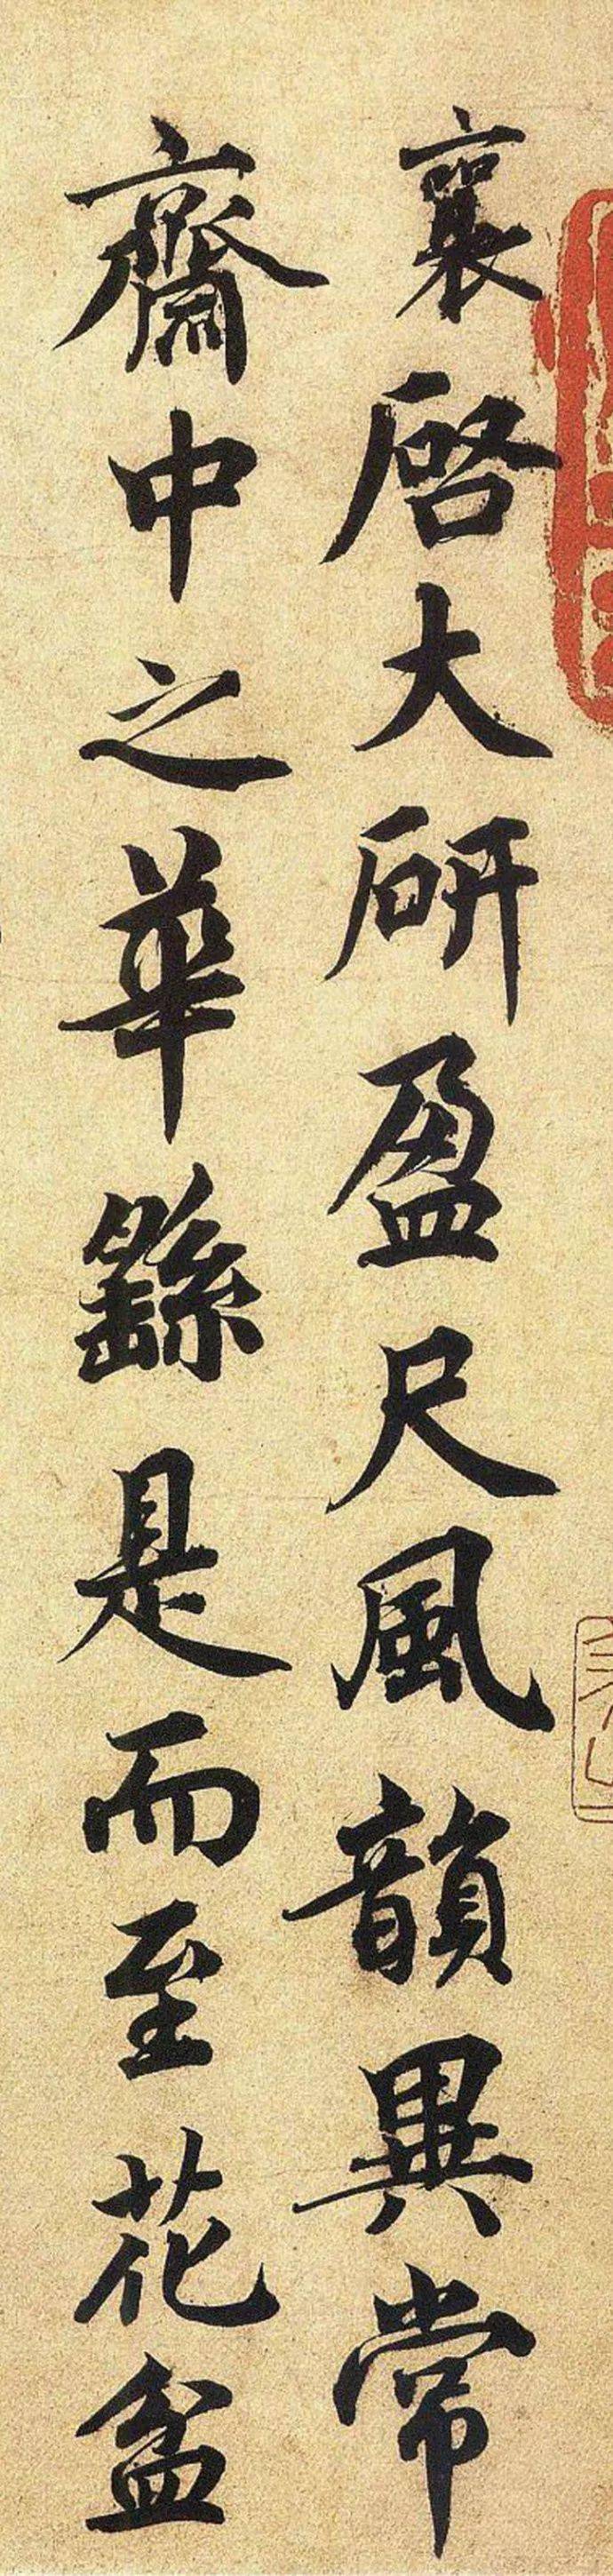 襄啓大研盈尺風韻異常
齋中之華繇是而至花盆